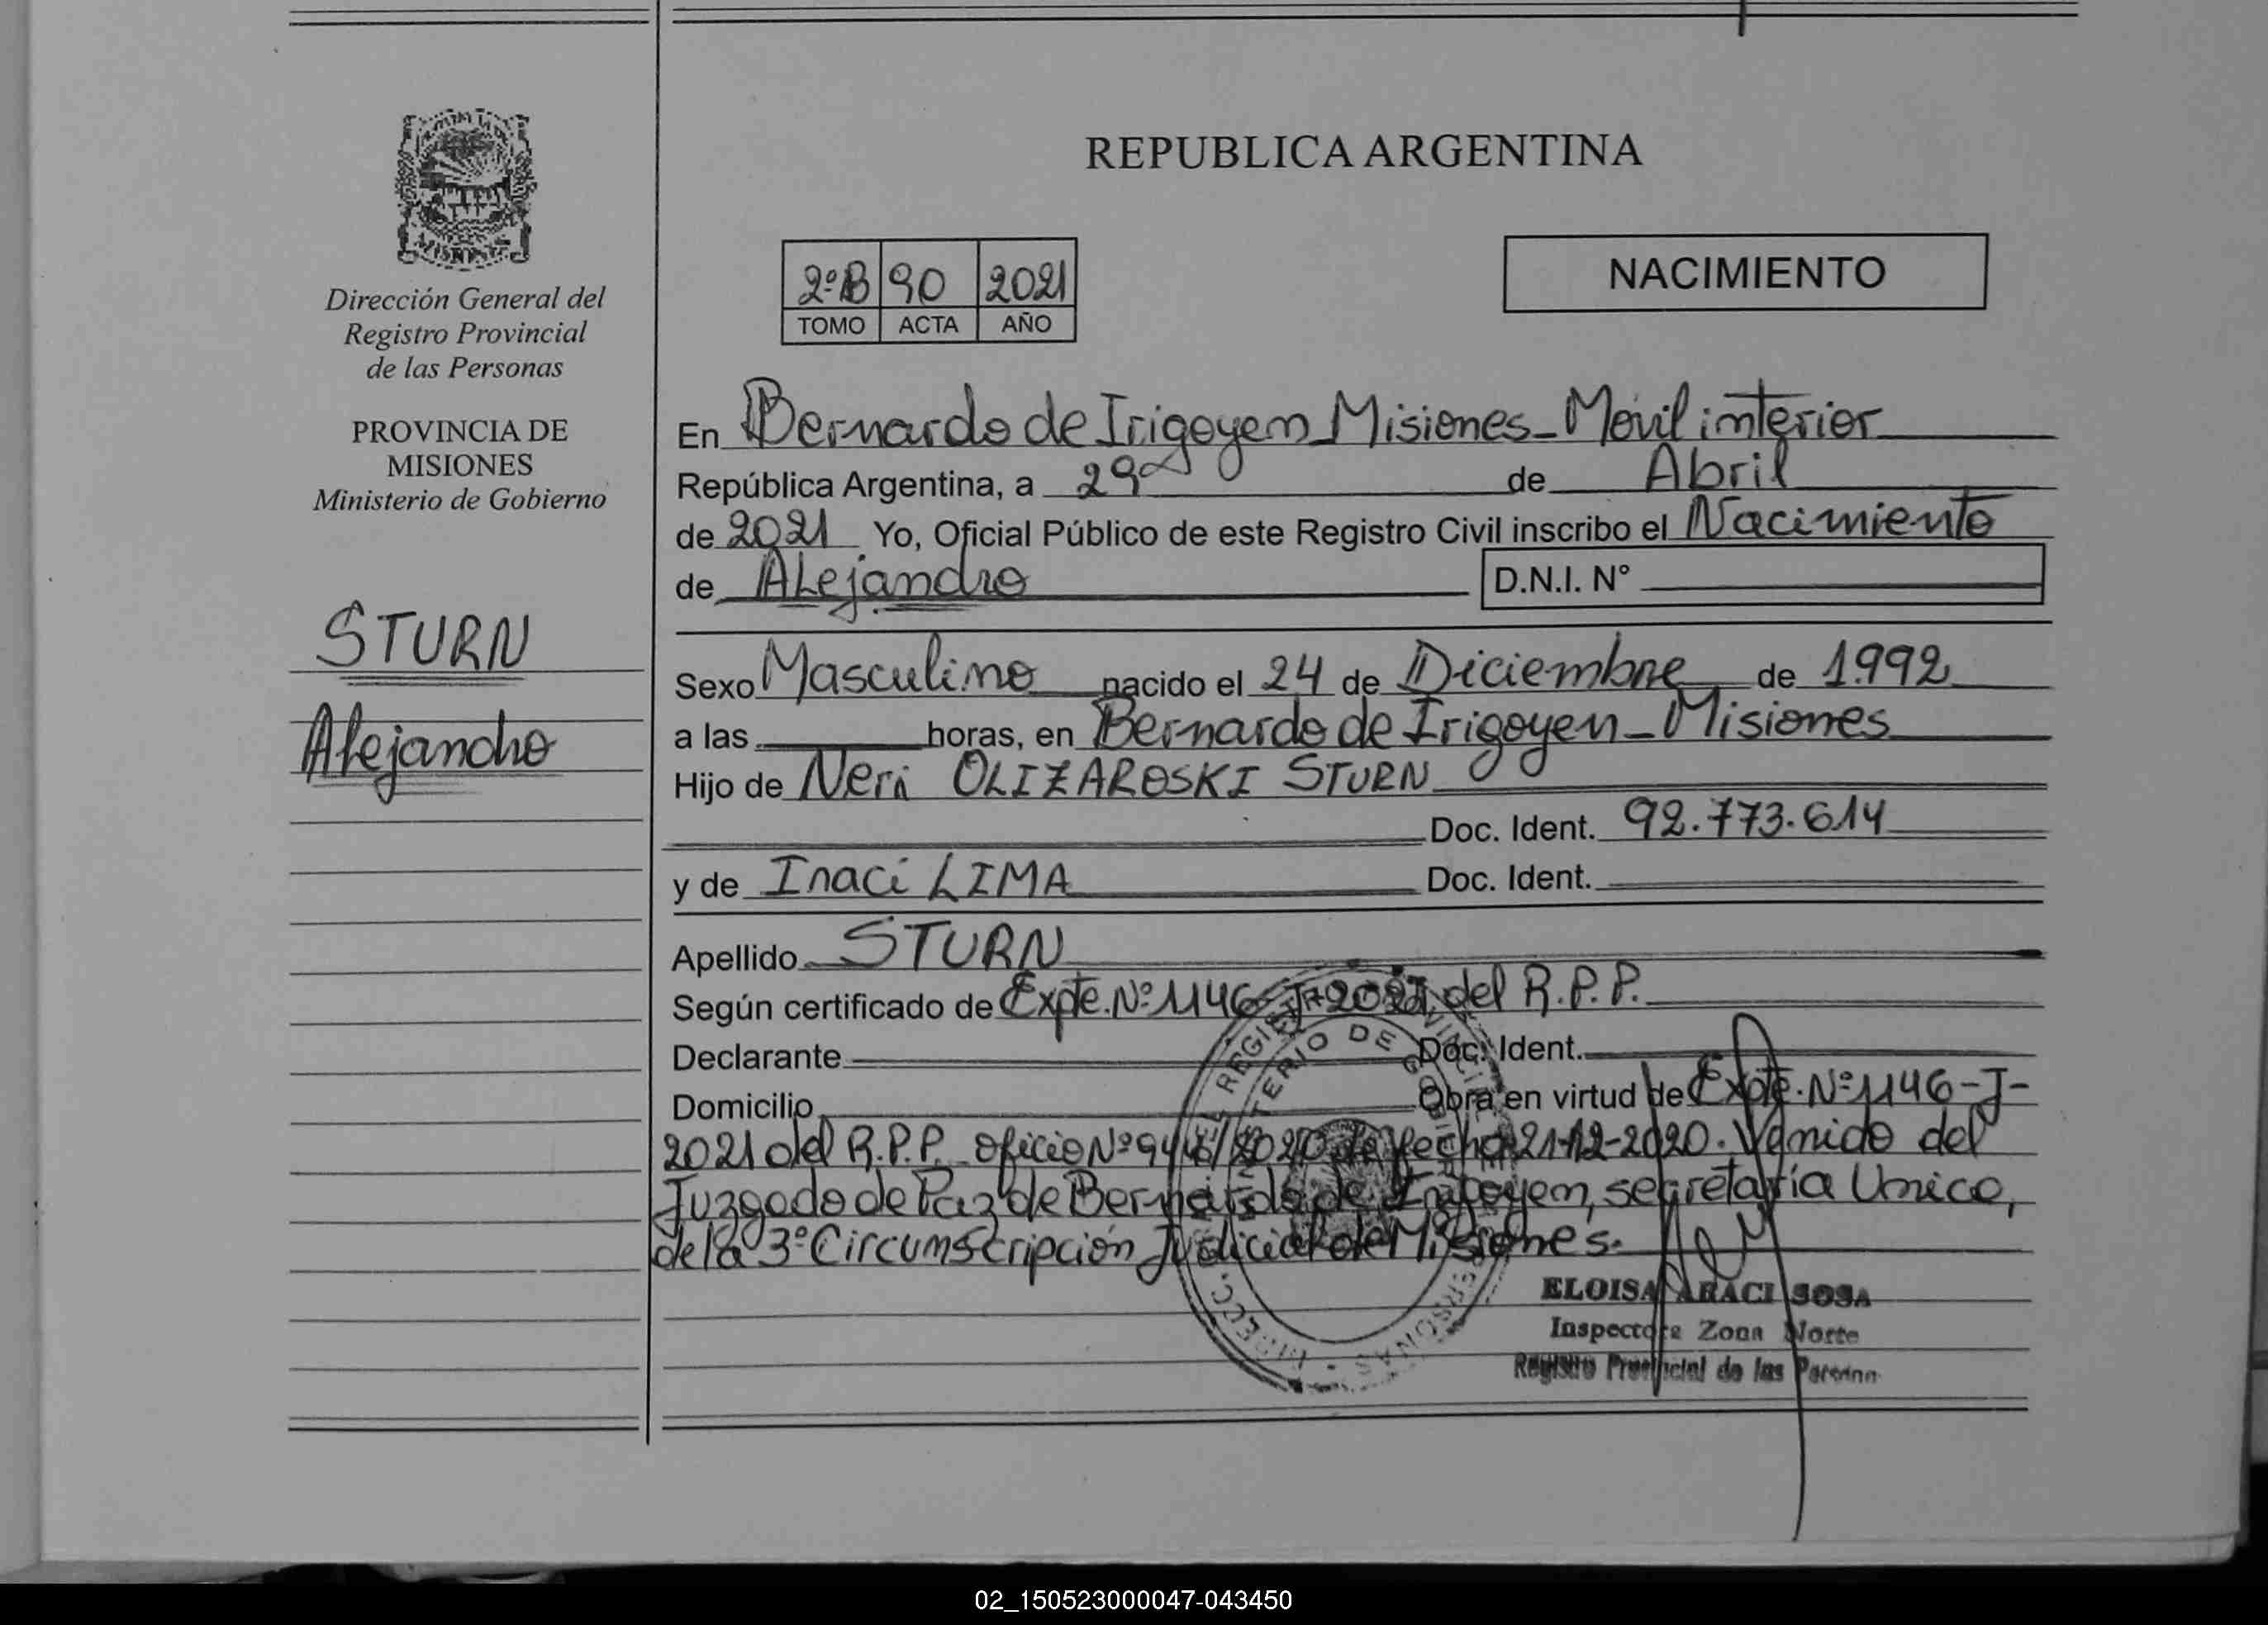 REPUBLICA ARGENTINA
Dirección General del
Registro Provincial
de las Personas
PROVINCIA DE
MISIONES
Ministerio de Gobierno
STURN
Alejandro
2º B 90 2021
TOMO ACTA AÑO
NACIMIENTO
En Bernardo de Irigoyen Misiones - Movil interior
República Argentina, a 29 de Abril
de 2021 Yo, Oficial Público de este Registro Civil inscribo el Nacimiento
de Alejandro D.N.I. N°
Sexo Masculino nacido el 24 de Diciembre de 1.992
a las horas, en Bernardo de Irigoyen - Misiones
Hijo de Neri OLIZAROSKI STURN
Doc. Ident. 92.773.614
y de Inaci LIMA Doc. Ident.
Apellido STURN
Según certificado de Expte. Nº 1146-J-2021 del R.P.P.
Declarante Doc. Ident.
Domicilio Obra en virtud de Expte. Nº 1146-J-
2021 del R.P.P. oficio Nº /2020 de fecha 21-12-2020. Venido del
Juzgado de Paz de Bernardo de Irigoyen, secretaría Unica,
de la 3º Circunscripción Judicial de Misiones.
ELOISA ARACI SOSA
Inspectora Zona Norte
Registro Provincial de las Personas
02_150523000047-043450